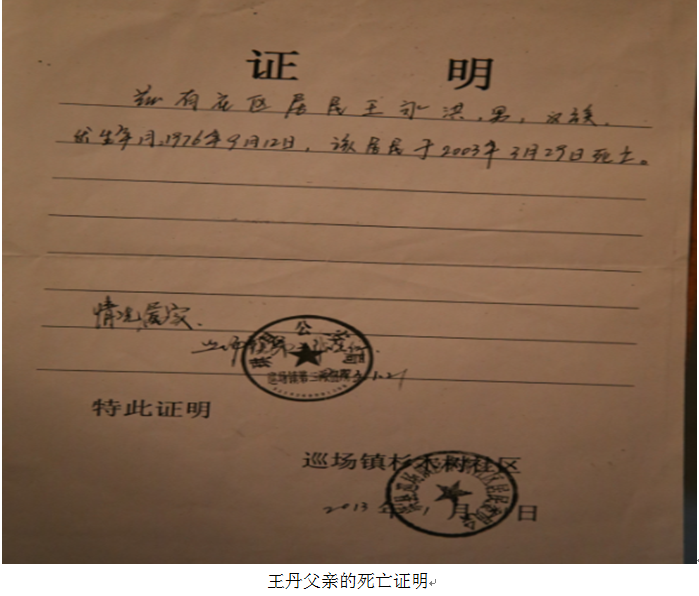 证 明
兹有在区居民王永洪,男,汉族,
出生年月1976年9月12日,该居民于2003年3月29日死亡。
情况属实.
特此证明
巡场镇杉木树社区
2013年1月 日
王丹父亲的死亡证明